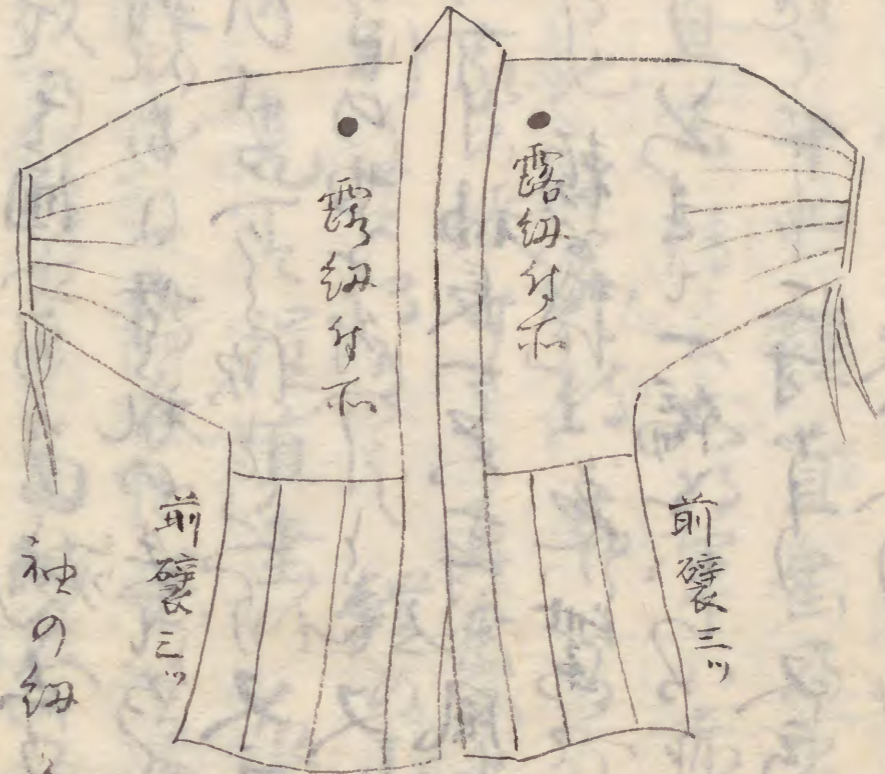 露紐付所
露紐付所
前襞三ツ
前襞三ツ
袖の紐